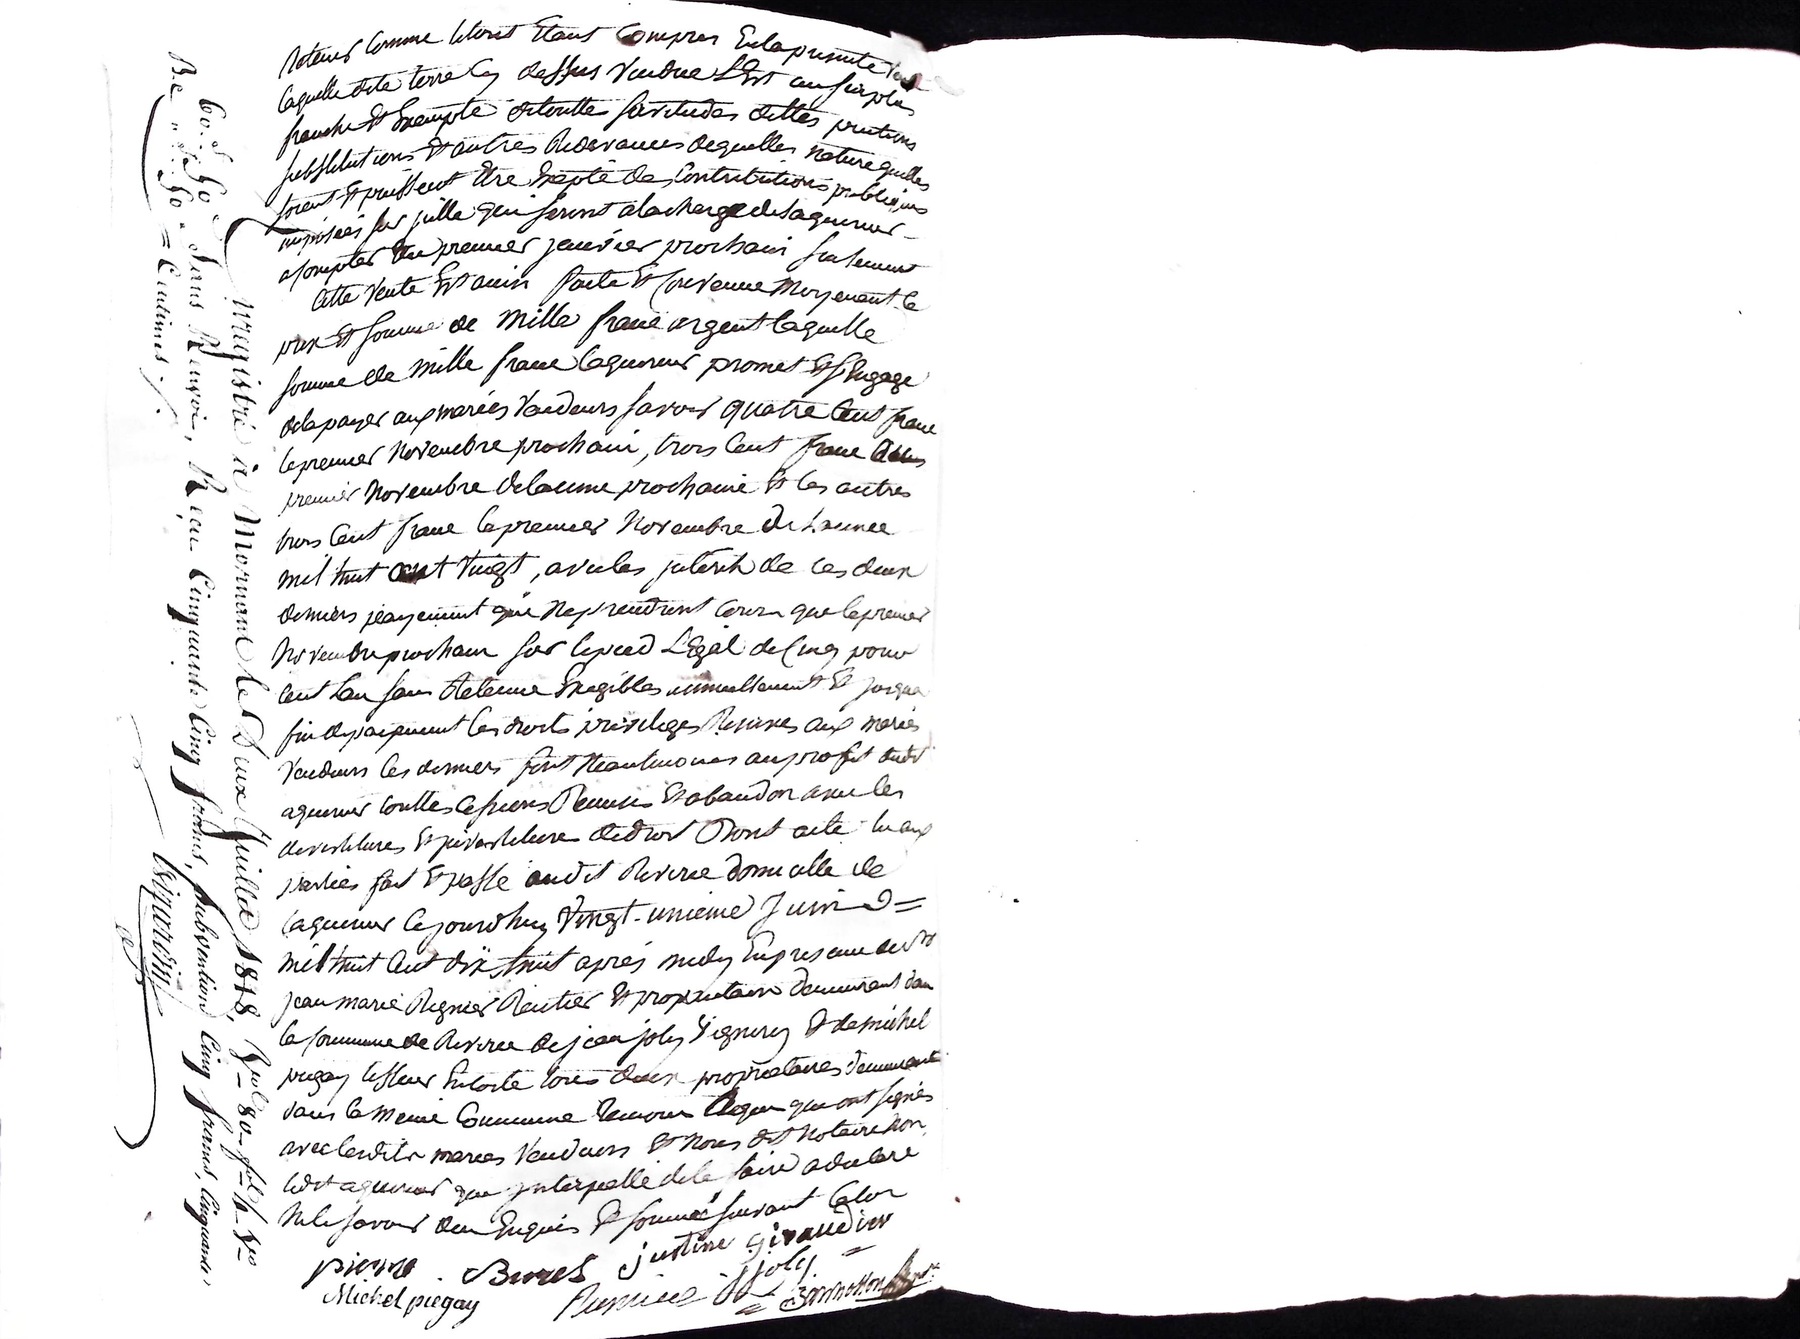 laquelle dite terre cy dessus vendue Est au surplus
franche Et Exempte de touttes servitudes dettes pentions
substitutions Et autres Redevances dequelles nature quelles
soient Et puissent Etre Excepté des Contributions publiques
imposées sur jcelle qui seront ala charge de laquereur
acompter du premier janvier prochain seulement
Cette vente Est ainsi faite Et Convenue Moyenant le
prix Et somme de Mille franc argent laquelle
somme de Mille franc laquereur promet Et s'Engage
dela payer aux mariés Vendeurs savoir quatre Cent franc
le premier Novembre prochain, trois Cent franc au
premier Novembre de lannée prochaine Et les autres
trois Cent franc le premier Novembre de Lannee
mil huit cent vingt, avec les jnterets de ces deux
derniers payement qui Neprendront cours que le premier
Novembre prochain sur le pied Légal de Cinq pour
Cent Lan sans Retenue Exigibles annuellement Et jusqua
fin de payement les droits privileges Reservés aux mariés
Vendeurs les derniers font au profit dudt
aquereur touttes Cessions Remises Et abandon avec les
devestitures Et jnvestitures de droit Dont acte lu aux
parties fait Et passé audit Riverie domicille de
laquereur Cejourdhuy Vingt-unieme Juin
mil huit Cent dix huit après midy En presence de Sr
jean marie Regnier Rentier Et propriétaire demeurant dans
la Commune de Riverie de jean joly Vigneron Et de michel
piegay tisseur tous deux propriétaires demeurant
dans la Meme Commune temoins Requis qui ont signés
avec lesdits mariés Vendeurs Et Nous dit Notaire Non
ledit aquereur que jnterpellé de le faire a déclaré
Ne le savoir deu Enquis Et sommé suivant la loi
pierre Burel justine giraudier
Michel piegay Regnier JJoly
Enregistré à Mornant le Deux Juillet 1818, fol. 80
60. f. 50. Sans Renvoi, Reçu Cinquante Cinq francs, subvention Cinq francs, Cinquante
50 = Centimes.